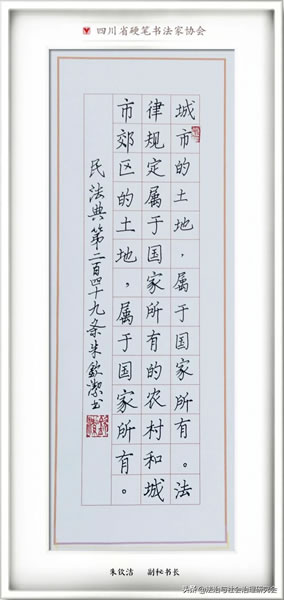 四川省硬笔书法家协会
城市的土地，属于国家所有。法
律规定属于国家所有的农村和城
市郊区的土地，属于国家所有。
民法典第二百四十九条朱欽潔书
朱钦洁 副秘书长
头条 @法治与社会治理研究会